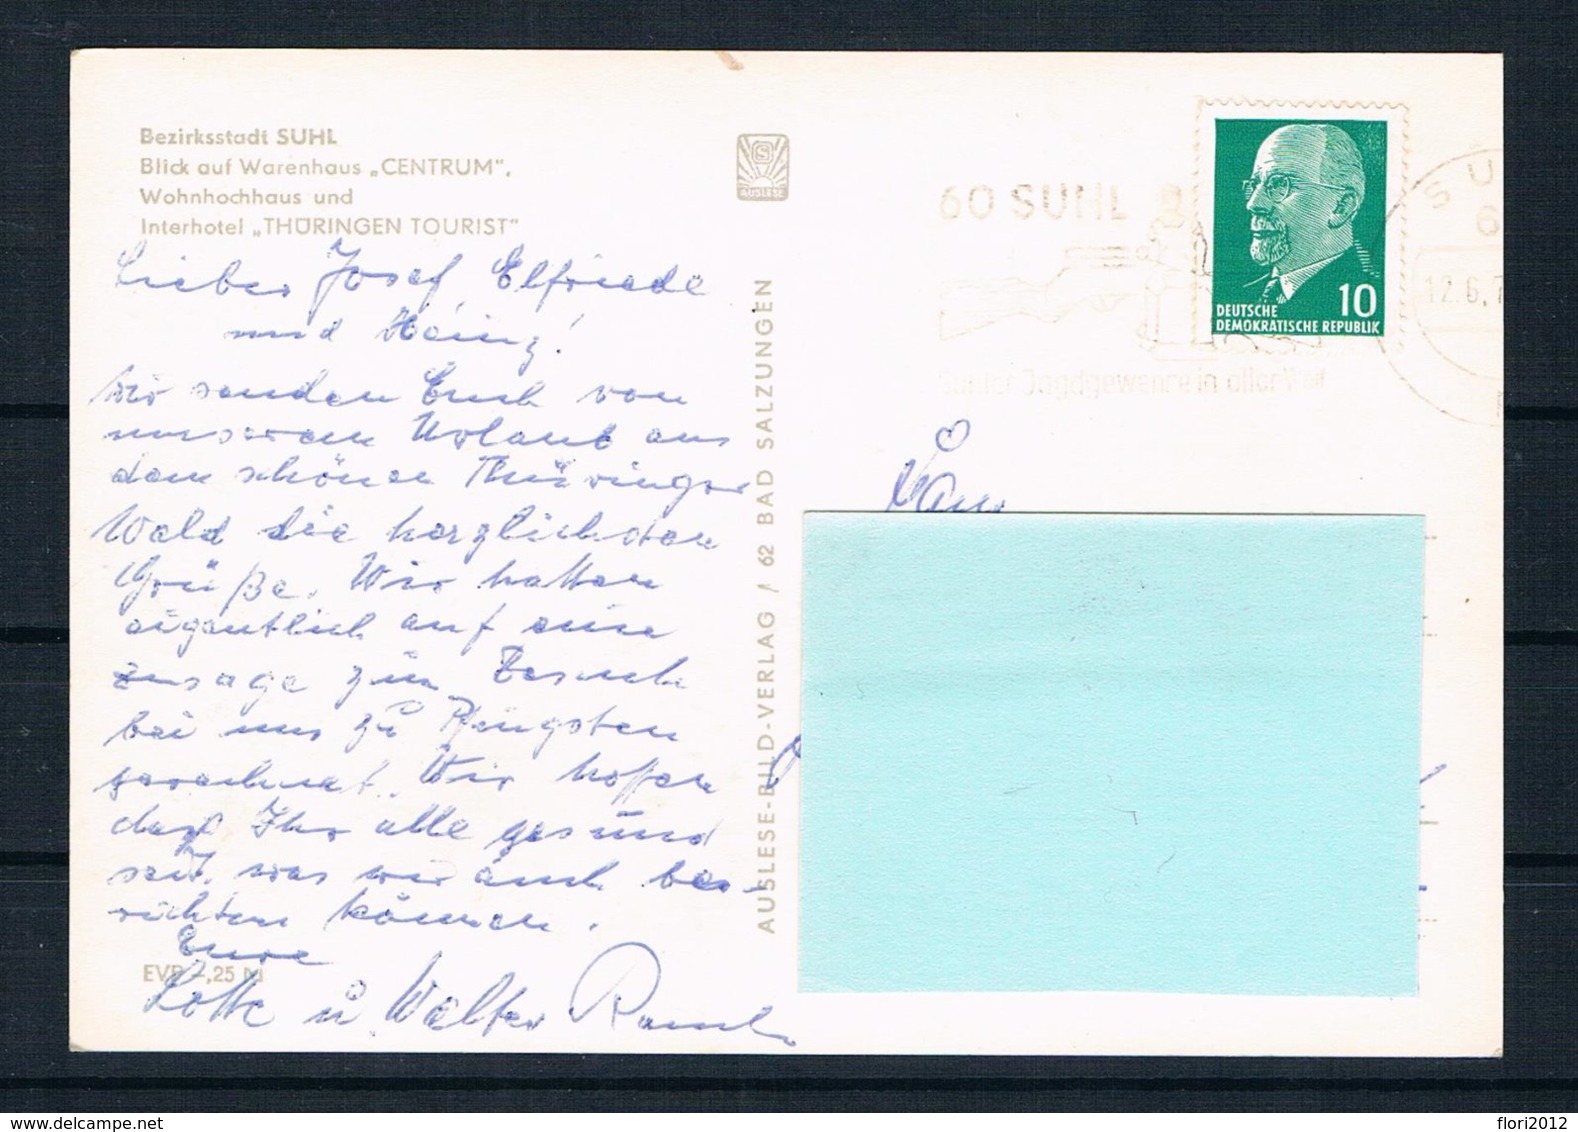 Bezirksstadt SUHL
Blick auf Warenhaus „CENTRUM",
Wohnhochhaus und
Interhotel „THÜRINGEN TOURIST"
Lieber Josef, Elfriede
und Heinz!
Wir senden Euch von
unserem Urlaub aus
dem schönen Thüringer
Wald die herzlichsten
Grüße. Wir hatten
eigentlich auf eine
Zusage zum Besuch
bei uns zu Pfingsten
gerechnet. Wir hoffen
daß Ihr alle gesund
seit, was wir auch be-
richten können.
Eure
Lotte u Walter
EVP -,25 M
AUSLESE
AUSLESE-BILD-VERLAG / 62 BAD SALZUNGEN
60 SUHL 8
Suhler Jagdgewehre in aller Welt
DEUTSCHE
DEMOKRATISCHE REPUBLIK
10
SU
6
12.6.7
Fam
flori2012